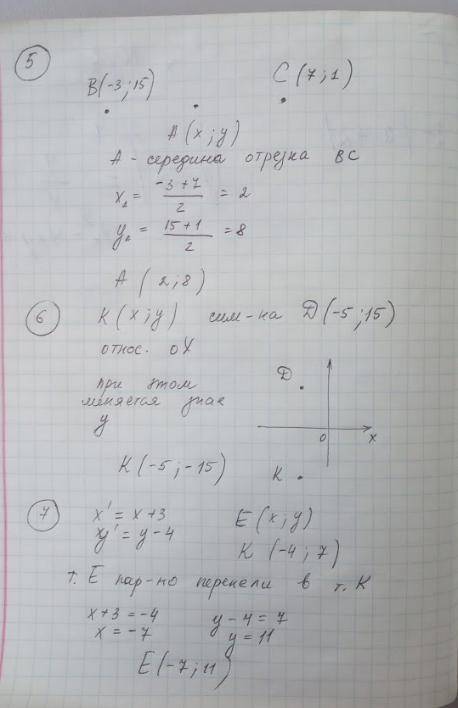 5
B(-3;15) C(7;1)
A(x;y)
A - середина отрезка BC
x₁ = (-3+7)/2 = 2
y₁ = (15+1)/2 = 8
A(2;8)
6 K(x;y) сим-на D(-5;15)
относ. оX
при этом
меняется знак
y
D
0 x
K(-5;-15)
K
7 x' = x+3 E(x;y)
y' = y-4 K(-4;7)
т. E пар-но перенели в т. K
x+3 = -4 y-4 = 7
x = -7 y = 11
E(-7;11)